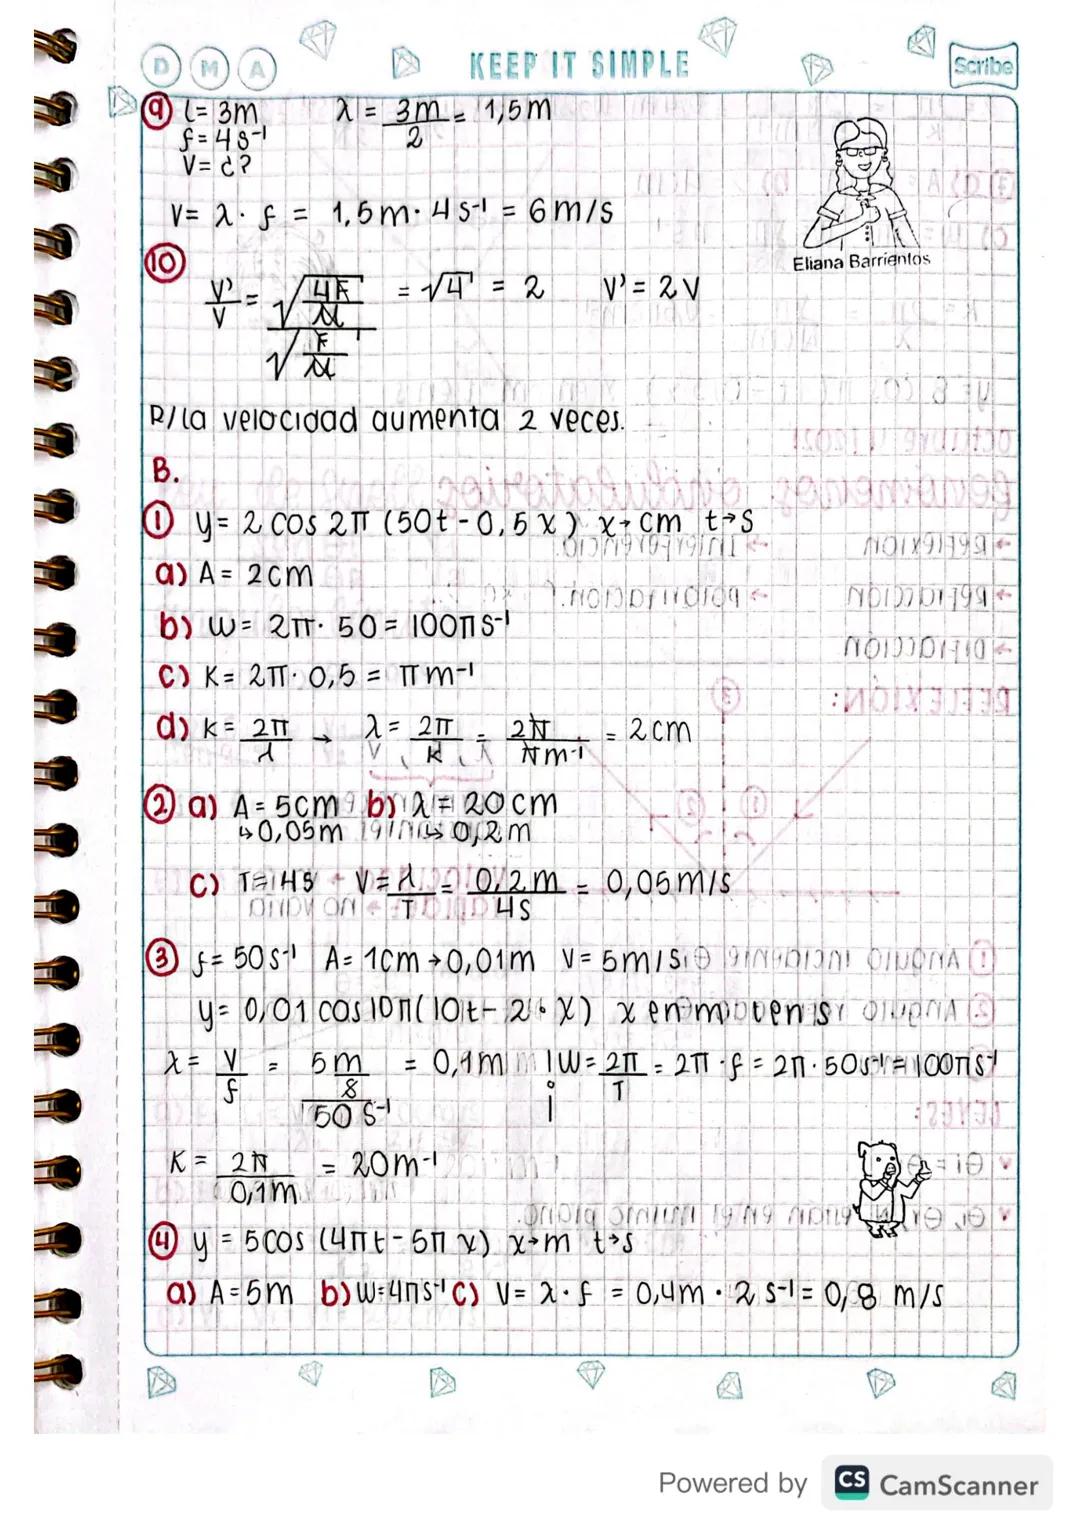 D M A KEEP IT SIMPLE Scribe
9 l= 3m λ = 3m/2 = 1,5m
f= 4 s⁻¹
V= ¿?
V= λ · f = 1,5m · 4 s⁻¹ = 6m/s
Eliana Barrientos
10
V'/V = √(4F/μ) / √(F/μ) = √4 = 2 V' = 2V
R/ la velocidad aumenta 2 veces.
B.
1 y= 2 cos 2π (50t - 0,5x) x→cm t→s
a) A= 2cm
b) W= 2π · 50 = 100π s⁻¹
c) K= 2π · 0,5 = π m⁻¹
d) K= 2π/λ → λ = 2π/K = 2π/πm⁻¹ = 2cm
2 a) A= 5cm b) λ = 20 cm
↳ 0,05m ↳ 0,2m
c) T=4s V= λ/T = 0,2m/4s = 0,05m/s
3 f= 50s⁻¹ A= 1cm→0,01m V= 5m/s
y= 0,01 cos 10π(10t - 2 · x) x en m t en s
λ = V/f = 5m/s / 50 s⁻¹ = 0,1m W= 2π/T = 2π · f = 2π · 50s⁻¹ = 100πs⁻¹
K = 2π/0,1m = 20m⁻¹
4 y = 5cos (4πt - 5π x) x→m t→s
a) A=5m b) W=4πs⁻¹ c) V= λ · f = 0,4m · 2 s⁻¹ = 0,8 m/s
Powered by CS CamScanner